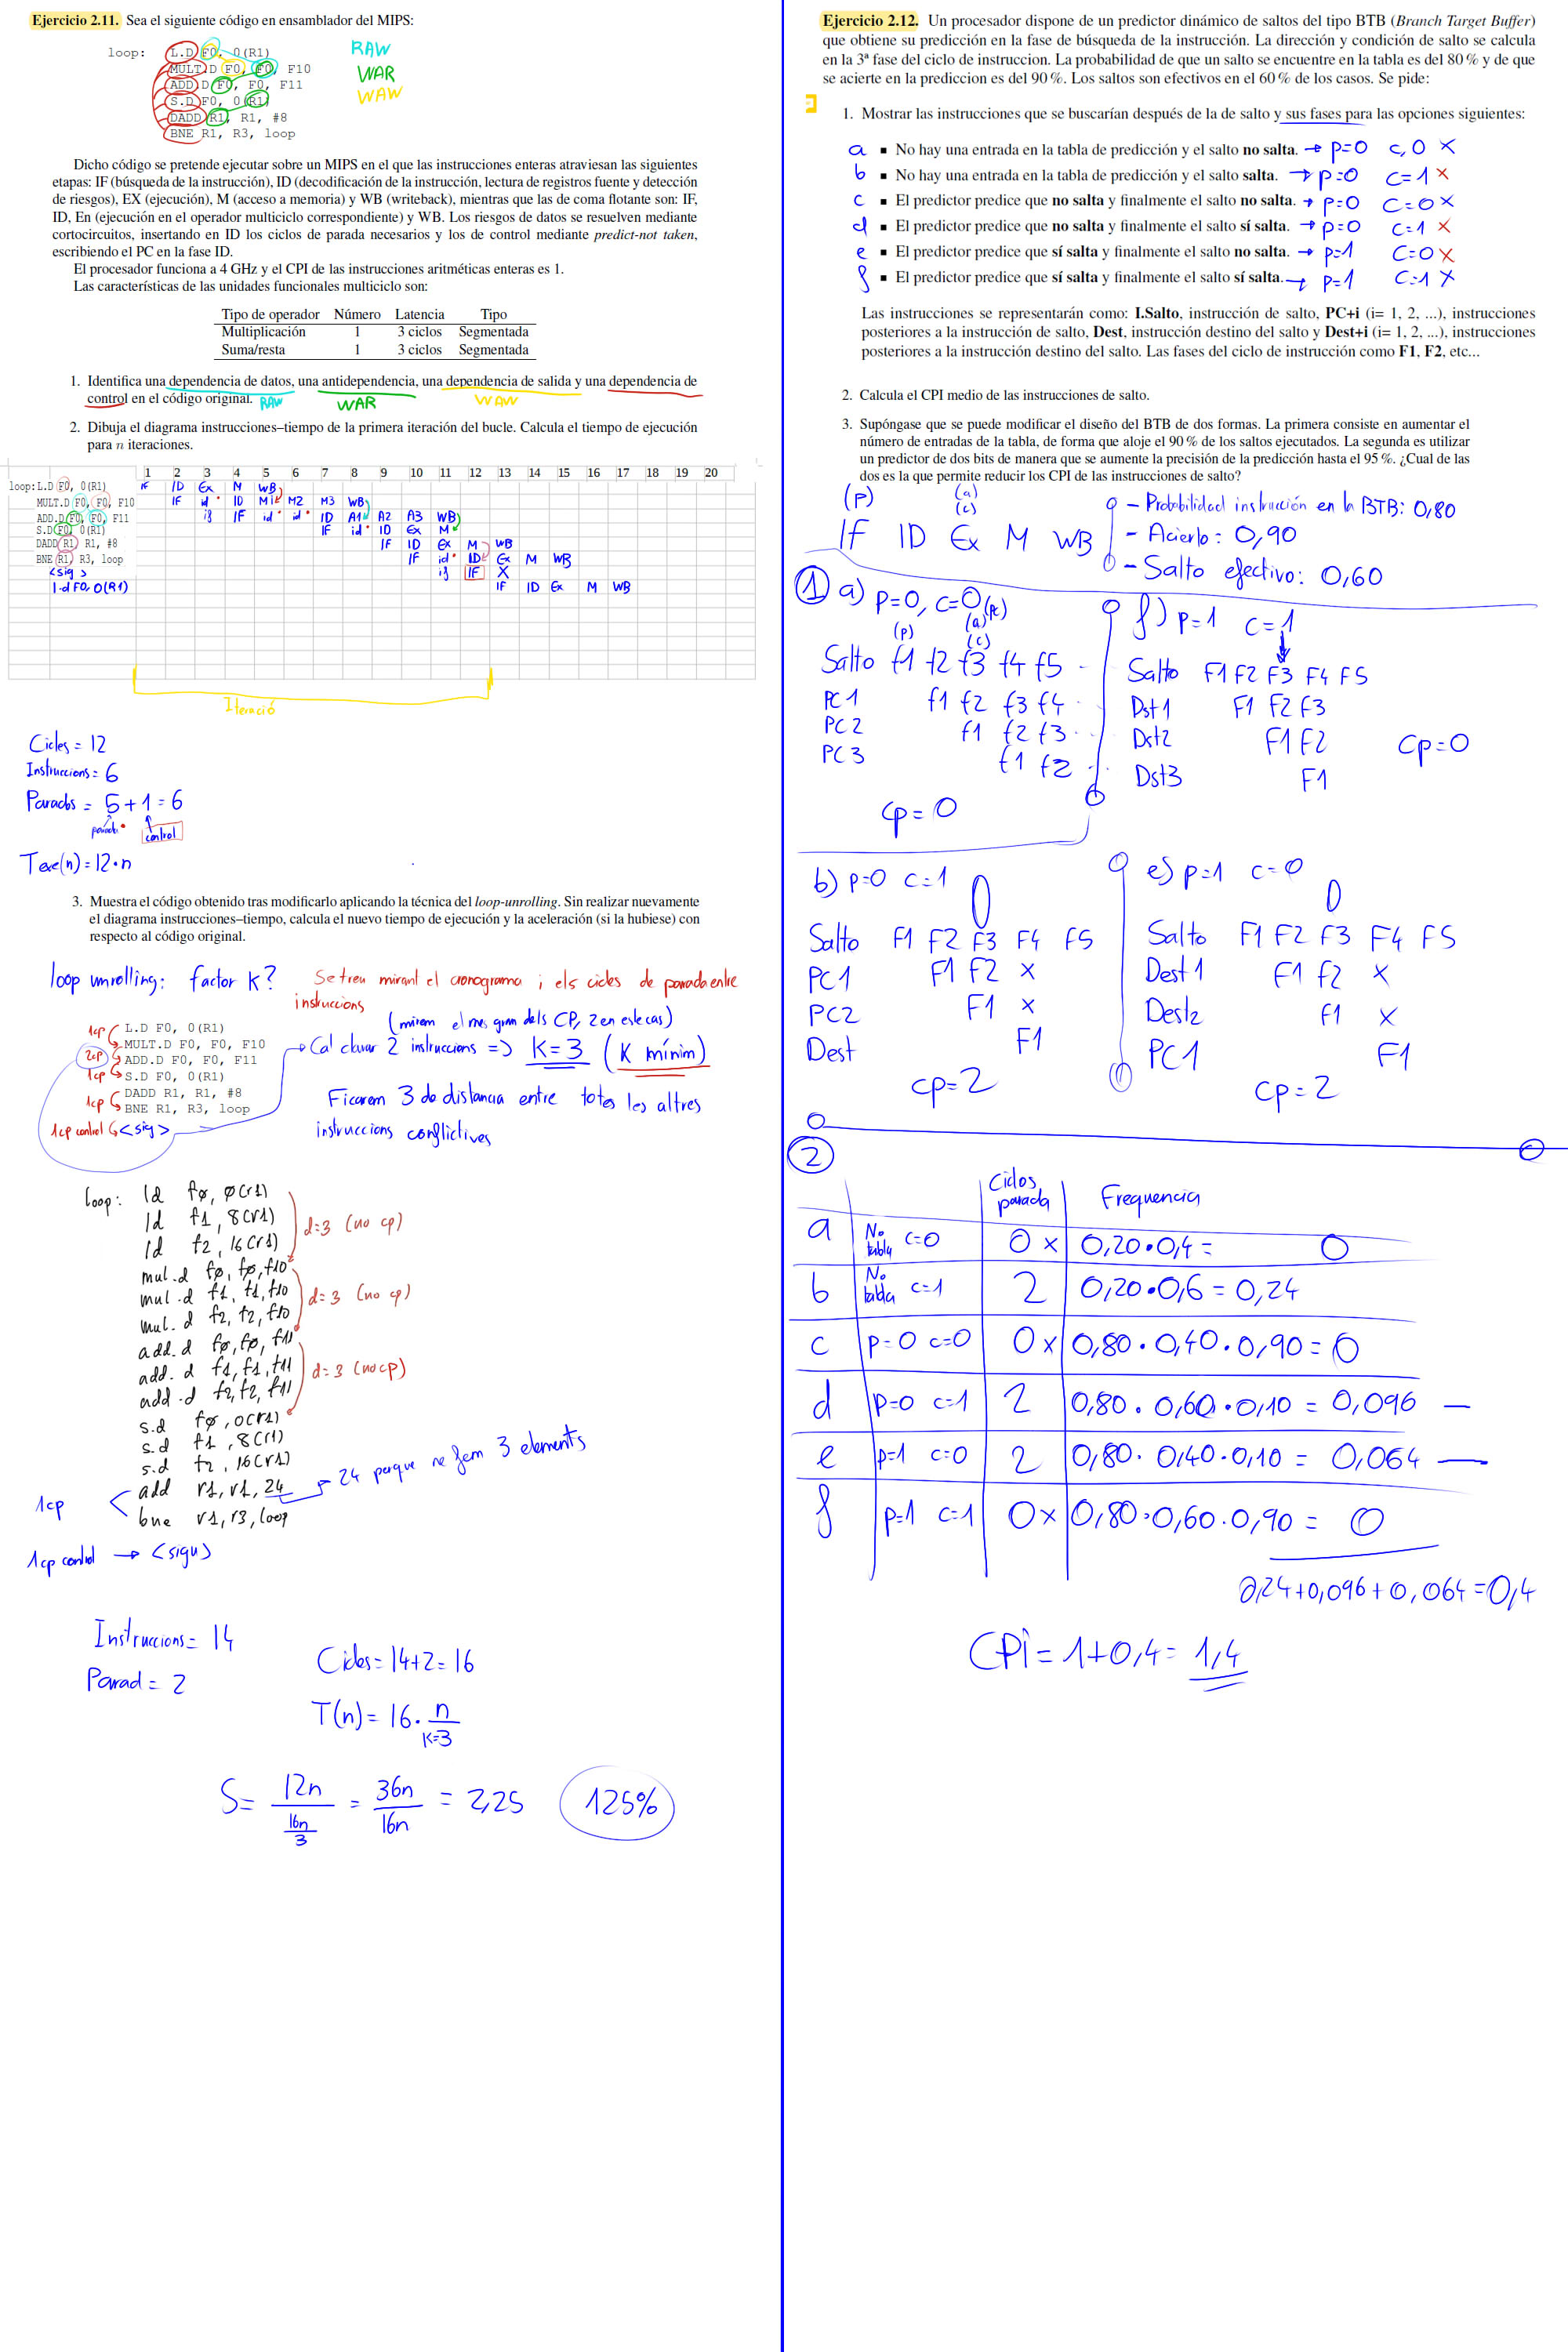 Ejercicio 2.11. Sea el siguiente código en ensamblador del MIPS:
loop: L.D F0, 0(R1)
MULT.D F0, F0, F10
ADD.D F0, F0, F11
S.D F0, 0(R1)
DADD R1, R1, #8
BNE R1, R3, loop
RAW
WAR
WAW
Dicho código se pretende ejecutar sobre un MIPS en el que las instrucciones enteras atraviesan las siguientes
etapas: IF (búsqueda de la instrucción), ID (decodificación de la instrucción, lectura de registros fuente y detección
de riesgos), EX (ejecución), M (acceso a memoria) y WB (writeback), mientras que las de coma flotante son: IF,
ID, En (ejecución en el operador multiciclo correspondiente) y WB. Los riesgos de datos se resuelven mediante
cortocircuitos, insertando en ID los ciclos de parada necesarios y los de control mediante predict-not taken,
escribiendo el PC en la fase ID.
El procesador funciona a 4 GHz y el CPI de las instrucciones aritméticas enteras es 1.
Las características de las unidades funcionales multiciclo son:
Tipo de operador Número Latencia Tipo
Multiplicación 1 3 ciclos Segmentada
Suma/resta 1 3 ciclos Segmentada
1. Identifica una dependencia de datos, una antidependencia, una dependencia de salida y una dependencia de
control en el código original. RAW WAR WAW
2. Dibuja el diagrama instrucciones–tiempo de la primera iteración del bucle. Calcula el tiempo de ejecución
para n iteraciones.
1 2 3 4 5 6 7 8 9 10 11 12 13 14 15 16 17 18 19 20
loop:L.D F0, 0(R1) IF ID Ex M WB
MULT.D F0, F0, F10 IF id ID M1 M2 M3 WB
ADD.D F0, F0, F11 if IF id id ID A1 A2 A3 WB
S.D F0, 0(R1) IF id ID Ex M
DADD R1, R1, #8 IF ID Ex M WB
BNE R1, R3, loop IF id ID Ex M WB
<sig> if IF X
l.d F0, 0(R1) IF ID Ex M WB
Iteració
Cicles = 12
Instruccions = 6
Parades = 5+1=6
parada control
Texe(n)=12·n
3. Muestra el código obtenido tras modificarlo aplicando la técnica del loop-unrolling. Sin realizar nuevamente
el diagrama instrucciones–tiempo, calcula el nuevo tiempo de ejecución y la aceleración (si la hubiese) con
respecto al código original.
loop unrolling: factor K? Se treu mirant el cronograma i els cicles de parada entre
instruccions
(mirem el mes gran dels CP, 2 en este cas)
Cal clavar 2 instruccions => K=3 (K mínim)
1cp L.D F0, 0(R1)
MULT.D F0, F0, F10
2cp ADD.D F0, F0, F11
1cp S.D F0, 0(R1)
1cp DADD R1, R1, #8
BNE R1, R3, loop
1cp control <sig>
Ficarem 3 de distancia entre totes les altres
instruccions conflictives
loop: ld f0, 0(r1)
ld f1, 8(r1)
ld f2, 16(r1)
d=3 (no cp)
mul.d f0, f0, f10
mul.d f1, f1, f10
mul.d f2, f2, f10
d=3 (no cp)
add.d f0, f0, f11
add.d f1, f1, f11
add.d f2, f2, f11
d=3 (no cp)
s.d f0, 0(r1)
s.d f1, 8(r1)
s.d f2, 16(r1)
add r1, r1, 24
24 perque ne fem 3 elements
1cp
bne r1, r3, loop
1cp control → <sigu>
Instruccions = 14
Parad = 2
Cicles = 14+2 = 16
T(n) = 16 · n
K=3
S= 12n = 36n = 2,25 125%
16n 16n
3
Ejercicio 2.12. Un procesador dispone de un predictor dinámico de saltos del tipo BTB (Branch Target Buffer)
que obtiene su predicción en la fase de búsqueda de la instrucción. La dirección y condición de salto se calcula
en la 3ª fase del ciclo de instruccion. La probabilidad de que un salto se encuentre en la tabla es del 80 % y de que
se acierte en la prediccion es del 90 %. Los saltos son efectivos en el 60 % de los casos. Se pide:
1. Mostrar las instrucciones que se buscarían después de la de salto y sus fases para las opciones siguientes:
a ▪ No hay una entrada en la tabla de predicción y el salto no salta. → p=0 c,0 X
b ▪ No hay una entrada en la tabla de predicción y el salto salta. → p=0 c=1 X
c ▪ El predictor predice que no salta y finalmente el salto no salta. → p=0 c=0 X
d ▪ El predictor predice que no salta y finalmente el salto sí salta. → p=0 c=1 X
e ▪ El predictor predice que sí salta y finalmente el salto no salta. → p=1 c=0 X
f ▪ El predictor predice que sí salta y finalmente el salto sí salta. → p=1 c=1 X
Las instrucciones se representarán como: I.Salto, instrucción de salto, PC+i (i= 1, 2, ...), instrucciones
posteriores a la instrucción de salto, Dest, instrucción destino del salto y Dest+i (i= 1, 2, ...), instrucciones
posteriores a la instrucción destino del salto. Las fases del ciclo de instrucción como F1, F2, etc...
2. Calcula el CPI medio de las instrucciones de salto.
3. Supóngase que se puede modificar el diseño del BTB de dos formas. La primera consiste en aumentar el
número de entradas de la tabla, de forma que aloje el 90 % de los saltos ejecutados. La segunda es utilizar
un predictor de dos bits de manera que se aumente la precisión de la predicción hasta el 95 %. ¿Cual de las
dos es la que permite reducir los CPI de las instrucciones de salto?
(p) (a)
(c)
IF ID Ex M WB
- Probabilidad instrucción en la BTB: 0,80
- Acierto: 0,90
- Salto efectivo: 0,60
1 a) p=0, c=0 (pc)
(p) (a)
(c)
Salto f1 f2 f3 f4 f5
PC1 f1 f2 f3 f4
PC2 f1 f2 f3
PC3 f1 f2
cp=0
f) p=1 c=1
Salto F1 F2 F3 F4 F5
Dst1 F1 F2 F3
Dst2 F1 F2
Dst3 F1
cp=0
b) p=0 c=1
Salto F1 F2 F3 F4 F5
PC1 F1 F2 X
PC2 F1 X
Dest F1
cp=2
e) p=1 c=0
Salto F1 F2 F3 F4 F5
Dest1 F1 f2 X
Dest2 f1 X
PC1 F1
cp=2
2
Ciclos parada Frequencia
a No tabla c=0 0 x 0,20·0,4= 0
b No tabla c=1 2 0,20·0,6=0,24
c p=0 c=0 0 x 0,80·0,40·0,90=0
d p=0 c=1 2 0,80·0,60·0,10=0,096 —
e p=1 c=0 2 0,80·0,40·0,10=0,064 —
f p=1 c=1 0 x 0,80·0,60·0,90= 0
0,24+0,096+0,064=0,4
CPI=1+0,4=1,4